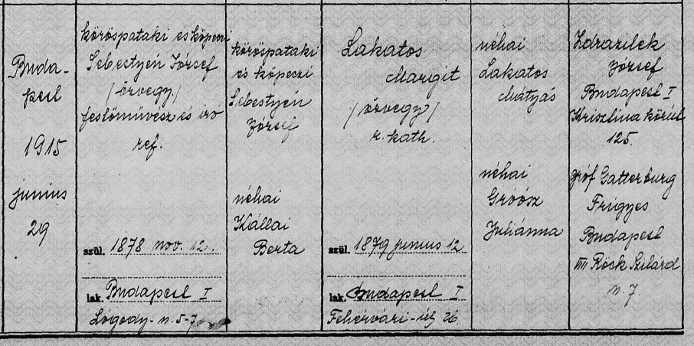 Buda-
pest
1915
junius
29
köröspataki és köpeczi
Sebestyén József
/özvegy/
festőművész és író
ref.
szül. 1878 nov. 12.
lak. Budapest I
Lógody-u. 5-7
köröspataki
és köpeczi
Sebestyén
József
néhai
Kállai
Berta
Lakatos
Margit
/özvegy/
r. kath.
szül. 1879 junius 12
lak. Budapest I
Fehérvári-út 26
néhai
Lakatos
Mátyás
néhai
Groósz
Juliánna
Zdrazilek
József
Budapest I
Krisztina körút
125.
gróf Gatterburg
Frigyes
Budapest
VIII Röck Szilárd
u. 7